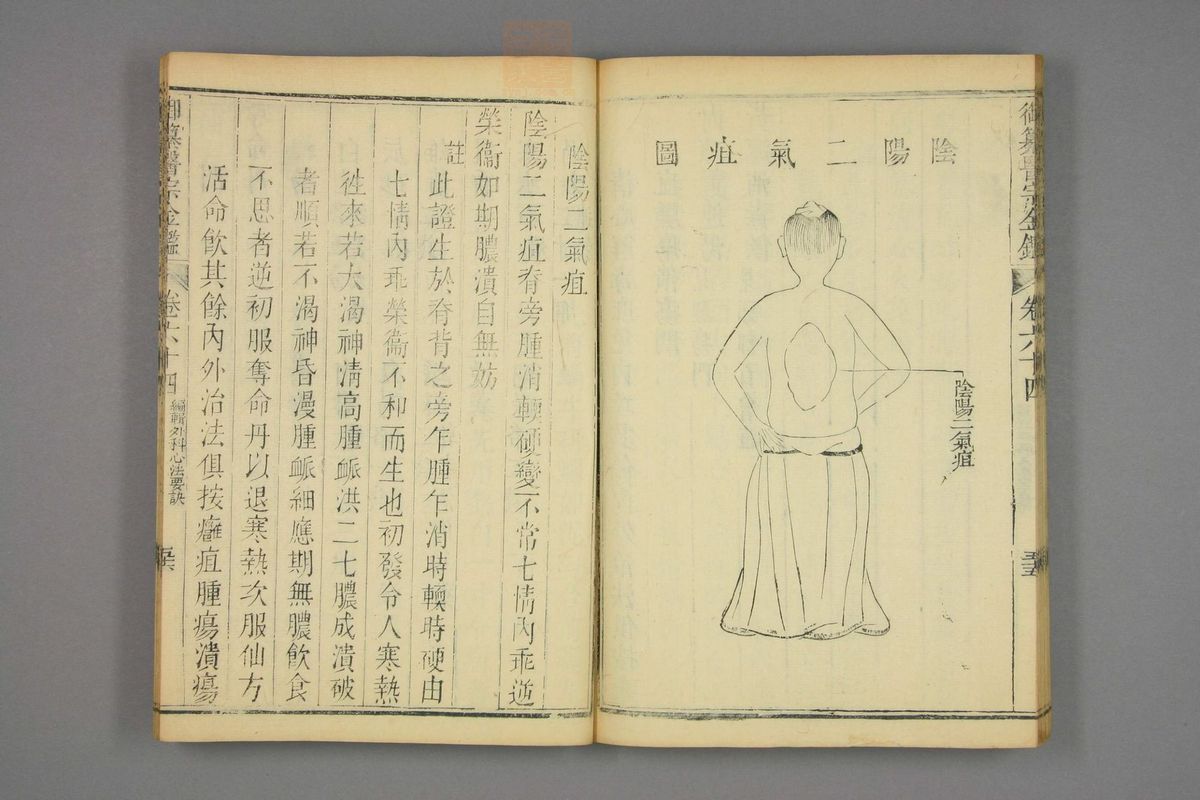 御纂醫宗金鑑 卷六十四 五五
陰陽二氣疽圖
陰陽二氣疽
陰陽二氣疽
陰陽二氣疽脊旁腫消輭硬變不常七情內乖逆
榮衞如期膿潰自無妨
註此證生於脊背之旁乍腫乍消時輭時硬由
七情內乖榮衞不和而生也初發令人寒熱
徃來若大渴神清高腫脈洪二七膿成潰破
者順若不渴神昏漫腫脈細應期無膿飲食
不思者逆初服奪命丹以退寒熱次服仙方
活命飲其餘內外治法俱按癰疽腫瘍潰瘍
御纂醫宗金鑑 卷六十四 編輯外科心法要訣 五六